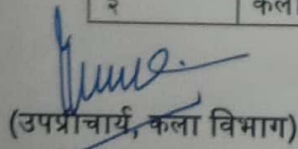 २ कला
(उपप्राचार्य, कला विभाग)